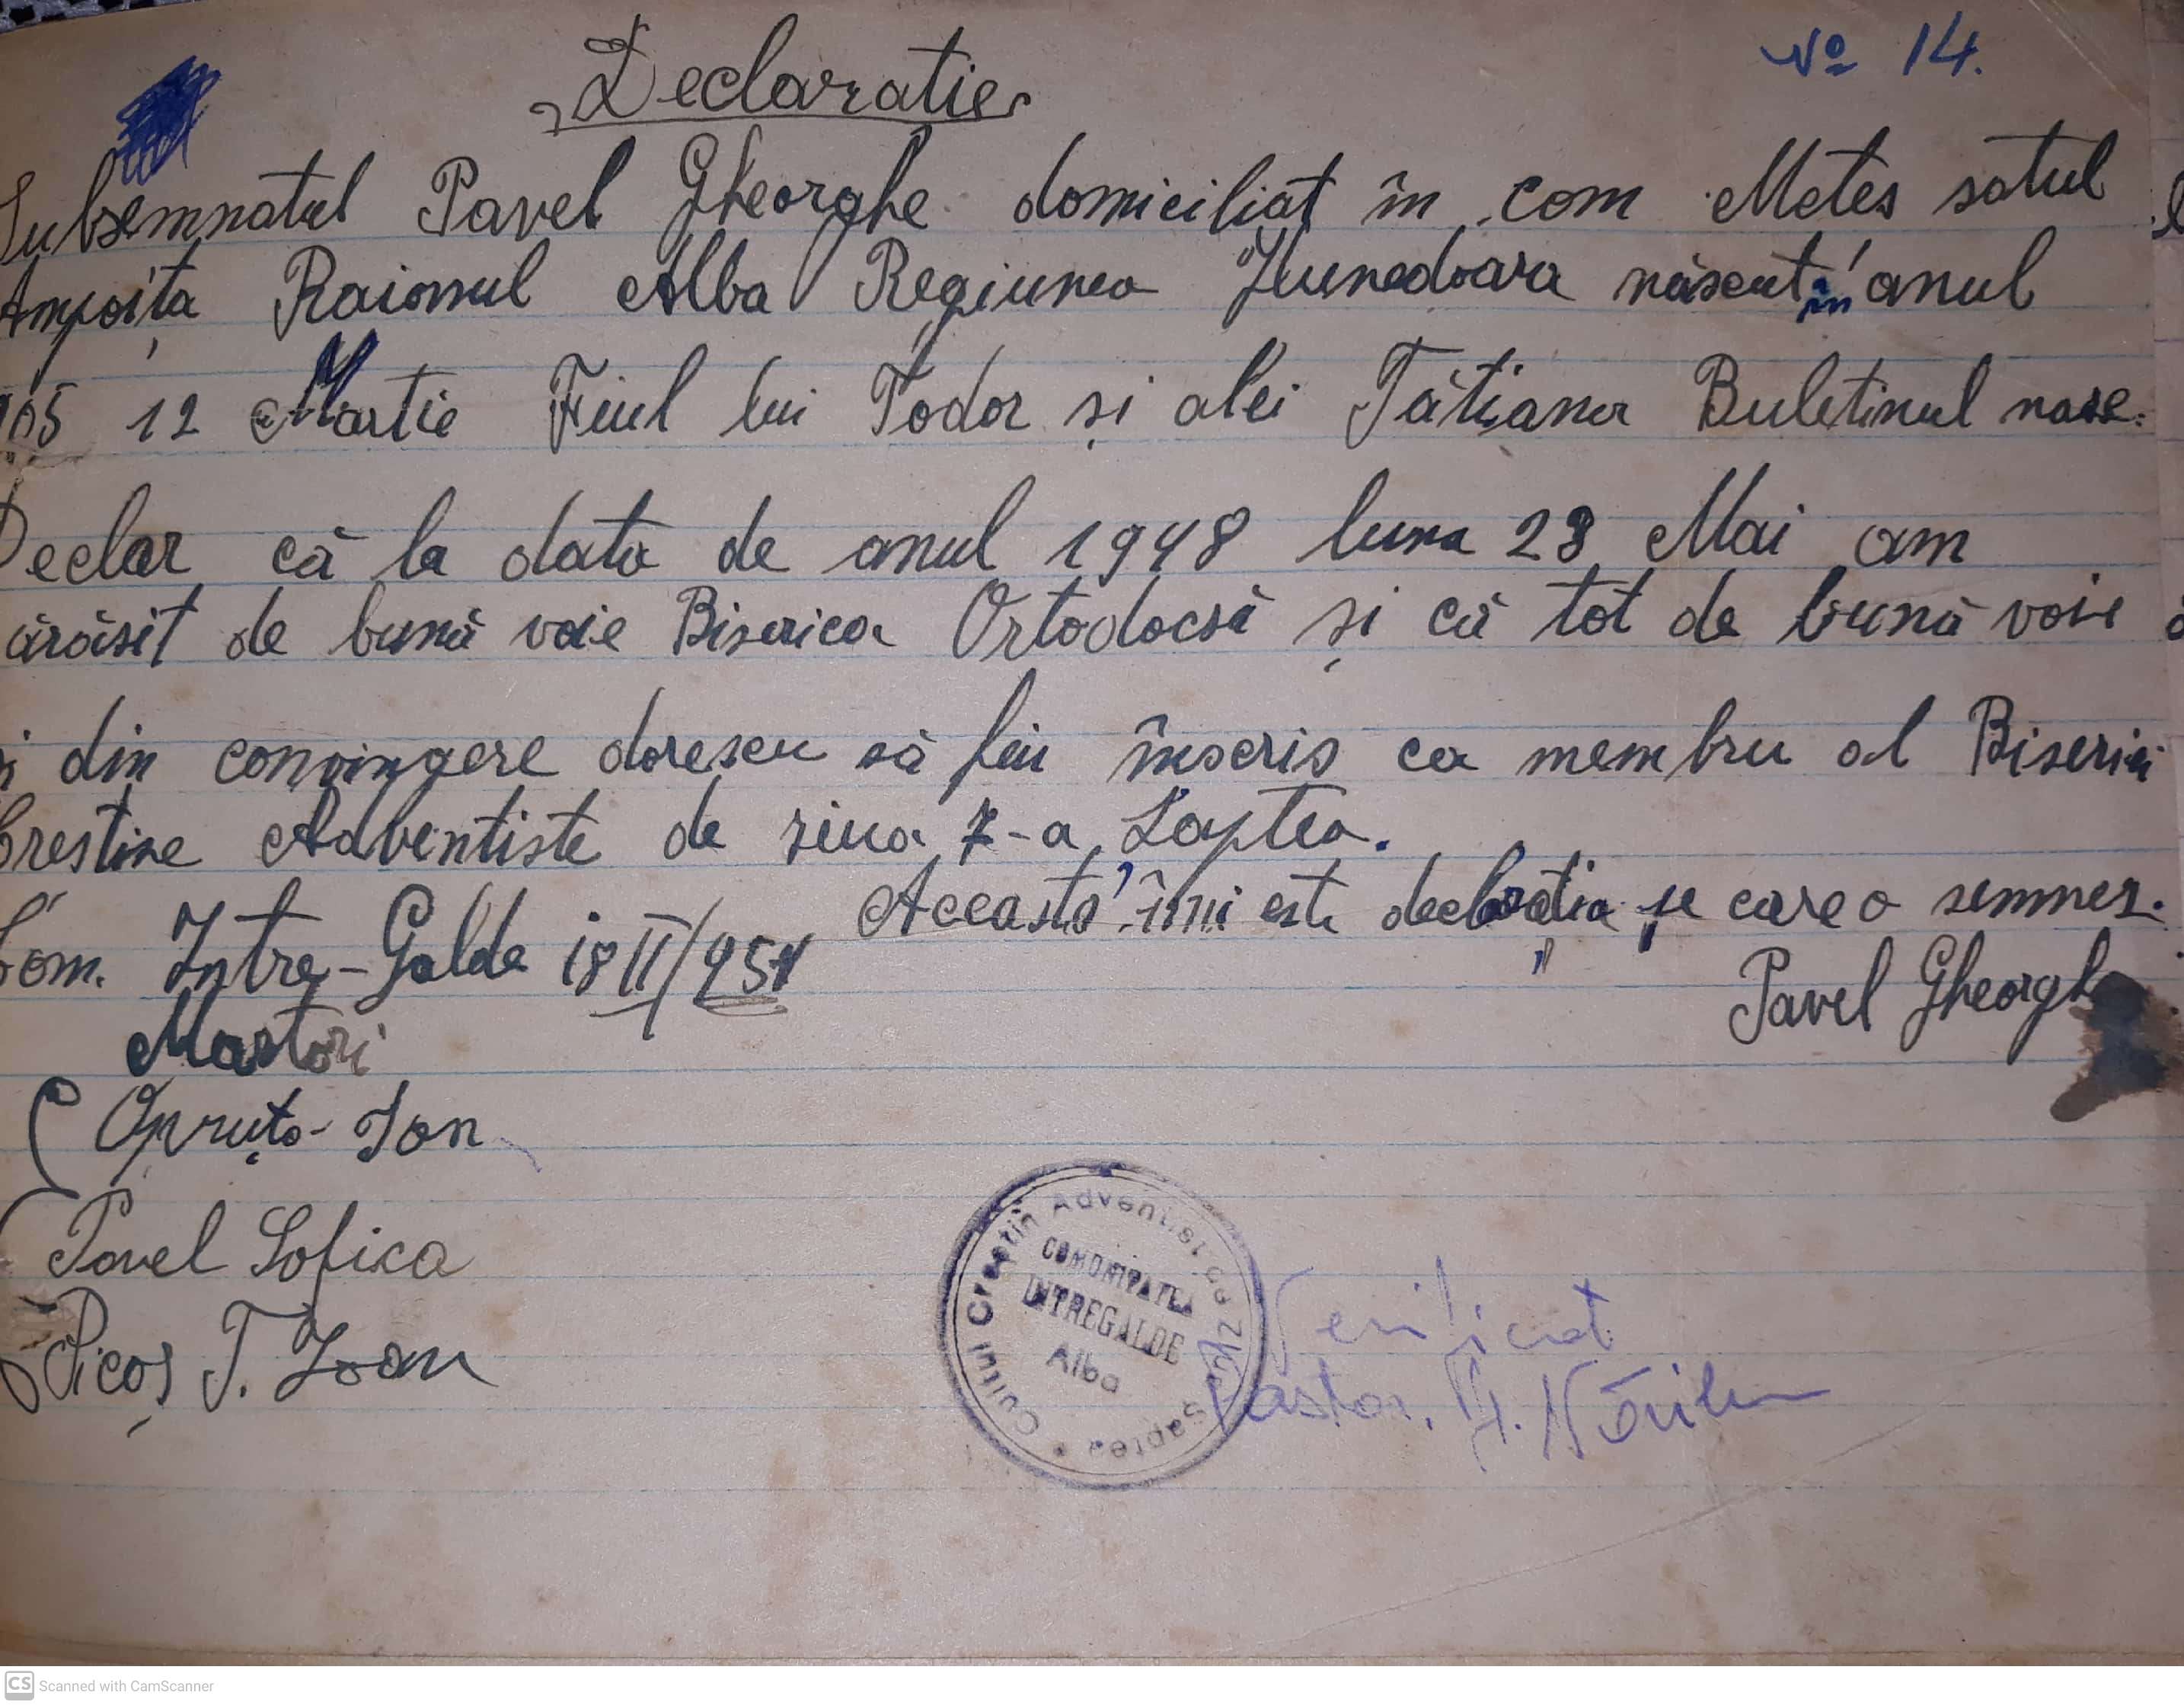 Nº 14.
„Declaratie„
Subsemnatul Pavel Gheorghe domiciliat în com Metes satul
Ampoița Raionul Alba Regiunea Hunedoara născut în anul
905 12 Martie Fiul lui Todor și alei Tătiana Buletinul
Declar că la data de anul 1948 luna 23 Mai am
ărăsit de bună voie Biserica Ortodocsă și că tot de bună voie
i din convingere dorescu să fiu înscris ca membru al Bisericii
Crestine Adventiste de ziua 7-a Șaptea.
Aceasta îmi este declarația pe care o semnez.
Com. Intre-Galde 18 II/951
Pavel Gheorghe
Martori
Opruța Ion
Pavel Sofica
Picoș T. Ioan
Cultul Creștin Adventist de Ziua Șaptea
COMUNITATEA
INTREGALDE
Alba
Verificat
Pastor.
CS Scanned with CamScanner